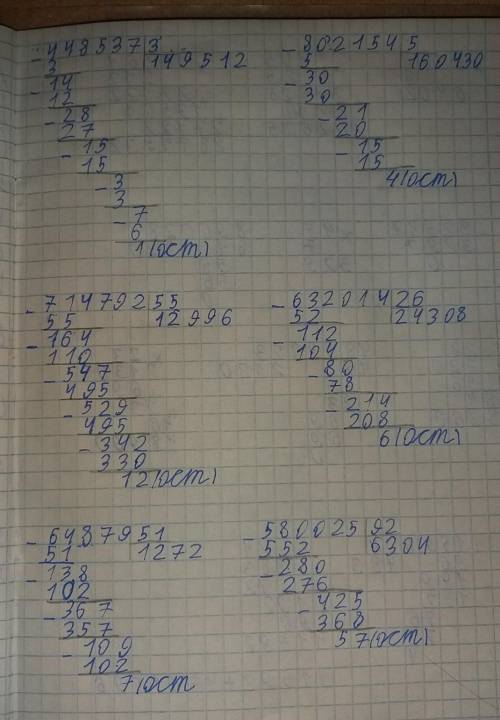 - 448537 3
3 149512
- 14
12
- 28
27
- 15
15
- 3
3
- 7
6
1(ост)
- 802154 5
5 160430
- 30
30
- 21
20
- 15
15
4(ост)
- 714792 55
55 12996
- 164
110
- 547
495
- 529
495
- 342
330
12(ост)
- 632014 26
52 24308
- 112
104
- 80
78
- 214
208
6(ост)
- 64879 51
51 1272
- 138
102
- 367
357
- 109
102
7(ост
- 580025 92
552 6304
- 280
276
- 425
368
57(ост)